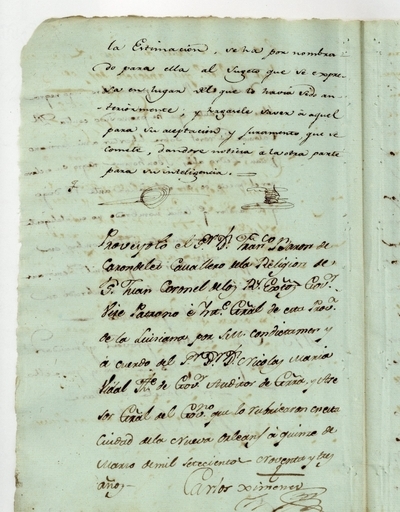 la Estimacion, se ha por nombra-
do para ella al Sugeto que se expre-
sa en lugar del que lo havia sido an-
teriormente, y hagasele saver à aquel
para su aceptacion y juramento que se
comete, dandose noticia a la otra parte
para su inteligencia.
Proveyolo el Sor. Dn. Franco. Baron de
Carondelet Cavallero de la Religion de
Sn. Juan Coronel de los Rs. Extos. Govr.
Vice Patrono è Gral de esta Prova.
de la Luisiana por S.M. con dictamen y
à cuerdo del Sor. Dn. Nicolas Maria
Vidal Tte. de Govr. Auditor de Grra. y Ase-
sor Gral del Govno. que lo rubricaron en esta
Ciudad de la Nueva Orleans à quince de
Marzo de mil setecientos noventa y
años
Carlos Ximenez